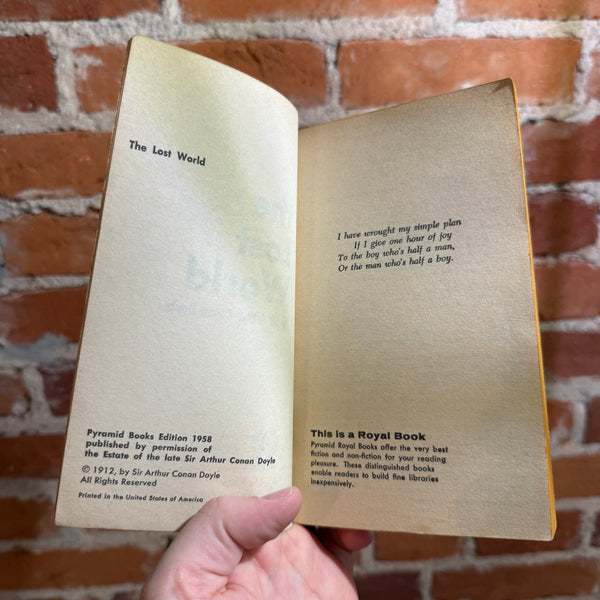 The Lost World
Pyramid Books Edition 1958
published by permission of
the Estate of the late Sir Arthur Conan Doyle
© 1912, by Sir Arthur Conan Doyle
All Rights Reserved
Printed in the United States of America
I have wrought my simple plan
If I give one hour of joy
To the boy who's half a man,
Or the man who's half a boy.
This is a Royal Book
Pyramid Royal Books offer the very best
fiction and non-fiction for your reading
pleasure. These distinguished books
enable readers to build fine libraries
inexpensively.